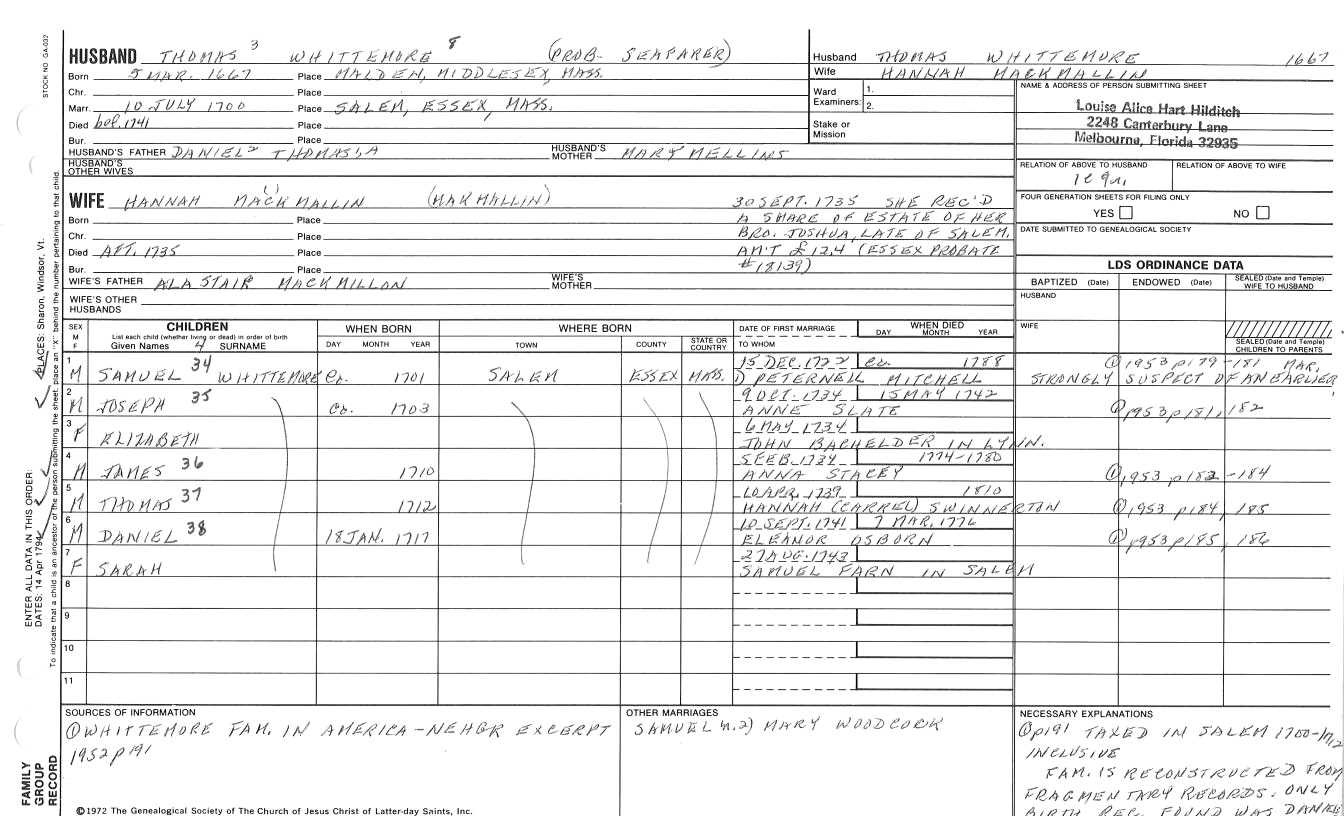 STOCK NO. GA-037
HUSBAND THOMAS 3 WHITTEMORE 8 (PROB. SEAFARER)
Born 5 MAR. 1667 Place MALDEN, MIDDLESEX, MASS.
Chr. Place
Marr. 10 JULY 1700 Place SALEM, ESSEX, MASS.
Died bef. 1741 Place
Bur. Place
HUSBAND'S FATHER DANIEL 2 THOMAS 1, A HUSBAND'S MOTHER MARY MELLINS
HUSBAND'S OTHER WIVES
Husband THOMAS WHITTEMORE 1667
Wife HANNAH MACKMALLIN
Ward Examiners: 1.
2.
Stake or Mission
NAME & ADDRESS OF PERSON SUBMITTING SHEET
Louise Alice Hart Hilditch
2248 Canterbury Lane
Melbourne, Florida 32935
RELATION OF ABOVE TO HUSBAND RELATION OF ABOVE TO WIFE
FOUR GENERATION SHEETS FOR FILING ONLY
YES NO
DATE SUBMITTED TO GENEALOGICAL SOCIETY
WIFE HANNAH MACKMALLIN (MAKMALLIN)
Born Place
Chr. Place
Died AFT. 1735 Place
Bur. Place
WIFE'S FATHER ALASTAIR MACKMILLON WIFE'S MOTHER
WIFE'S OTHER HUSBANDS
30 SEPT. 1735 SHE REC'D
A SHARE OF ESTATE OF HER
BRO. JOSHUA, LATE OF SALEM.
AM'T £ 12.4 (ESSEX PROBATE
#18139)
LDS ORDINANCE DATA
BAPTIZED (Date) ENDOWED (Date) SEALED (Date and Temple) WIFE TO HUSBAND
HUSBAND
WIFE
SEALED (Date and Temple) CHILDREN TO PARENTS
SEX M F
CHILDREN
List each child (whether living or dead) in order of birth
Given Names 4 SURNAME
WHEN BORN
DAY MONTH YEAR
WHERE BORN
TOWN COUNTY STATE OR COUNTRY
DATE OF FIRST MARRIAGE
TO WHOM
WHEN DIED
DAY MONTH YEAR
1 15 DEC. 1722 Ca. 1788 ① 1953 p179-181 MAR.
M SAMUEL 34 WHITTEMORE Ca. 1701 SALEM ESSEX MASS. 1) PETERNELL MITCHELL STRONGLY SUSPECT OF AN EARLIER
2 9 OCT. 1734 15 MAY 1742
M JOSEPH 35 Ca. 1703 ANNE SLATE ① 1953 p181, 182
3 6 MAY 1734
F ELIZABETH JOHN BACHELDER IN LYNN.
4 5 FEB. 1734 1774-1780
M JAMES 36 1710 ANNA STACEY ① 1953 p182-184
5 10 APR. 1739 1810
M THOMAS 37 1712 HANNAH (CARREL) SWINNERTON ① 1953 p184, 185
6 10 SEPT. 1741 7 MAR. 1776
M DANIEL 38 18 JAN. 1717 ELEANOR OSBORN ① 1953 p185, 186
7 27 AUG. 1743
F SARAH SAMUEL FARN IN SALEM
8
9
10
11
ENTER ALL DATA IN THIS ORDER:
DATES: 14 Apr 1794 PLACES: Sharon, Windsor, Vt.
To indicate that a child is an ancestor of the person submitting the sheet, place an "X" behind the number pertaining to that child.
FAMILY GROUP RECORD
SOURCES OF INFORMATION
① WHITTEMORE FAM. IN AMERICA - NEHGR EXCERPT
1952 p191
©1972 The Genealogical Society of The Church of Jesus Christ of Latter-day Saints, Inc.
OTHER MARRIAGES
SAMUEL m. 2) MARY WOODCOCK
NECESSARY EXPLANATIONS
① p191 TAXED IN SALEM 1700-1712
INCLUSIVE
FAM. IS RECONSTRUCTED FROM
FRAGMENTARY RECORDS. ONLY
BIRTH REC. FOUND WAS DANIEL